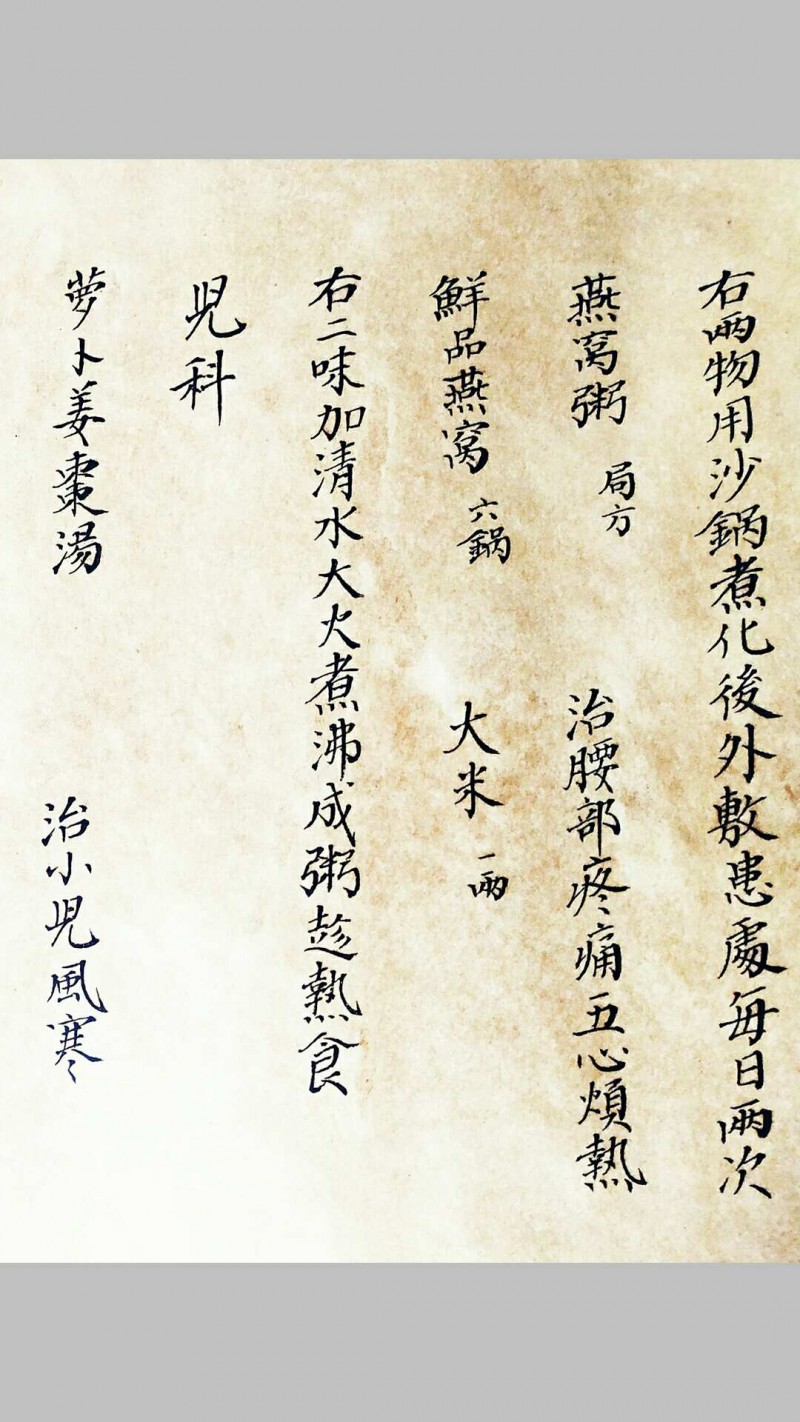 右兩物用沙鍋煮化後外敷患處每日兩次
燕窩粥 局方 治腰部疼痛五心煩熱
鮮品燕窩 六鍋 大米 一兩
右二味加清水大火煮沸成粥趁熱食
児科
萝卜姜棗湯 治小児風寒